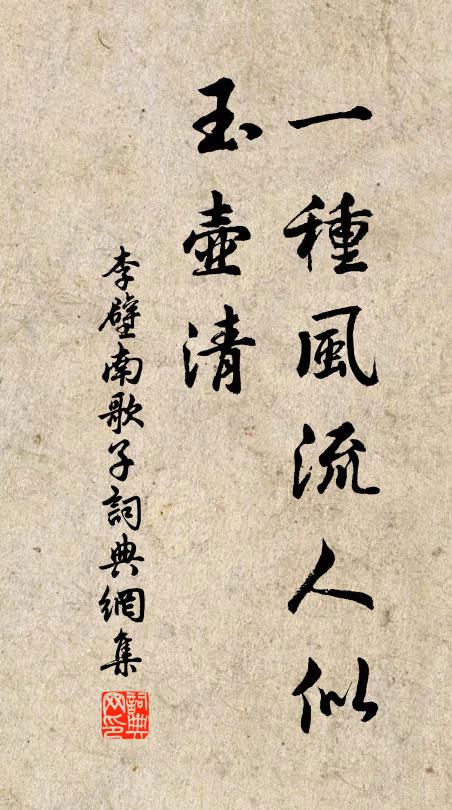 一種風流人似
玉壺清
李壁南歌子詞典網集
詞典網印